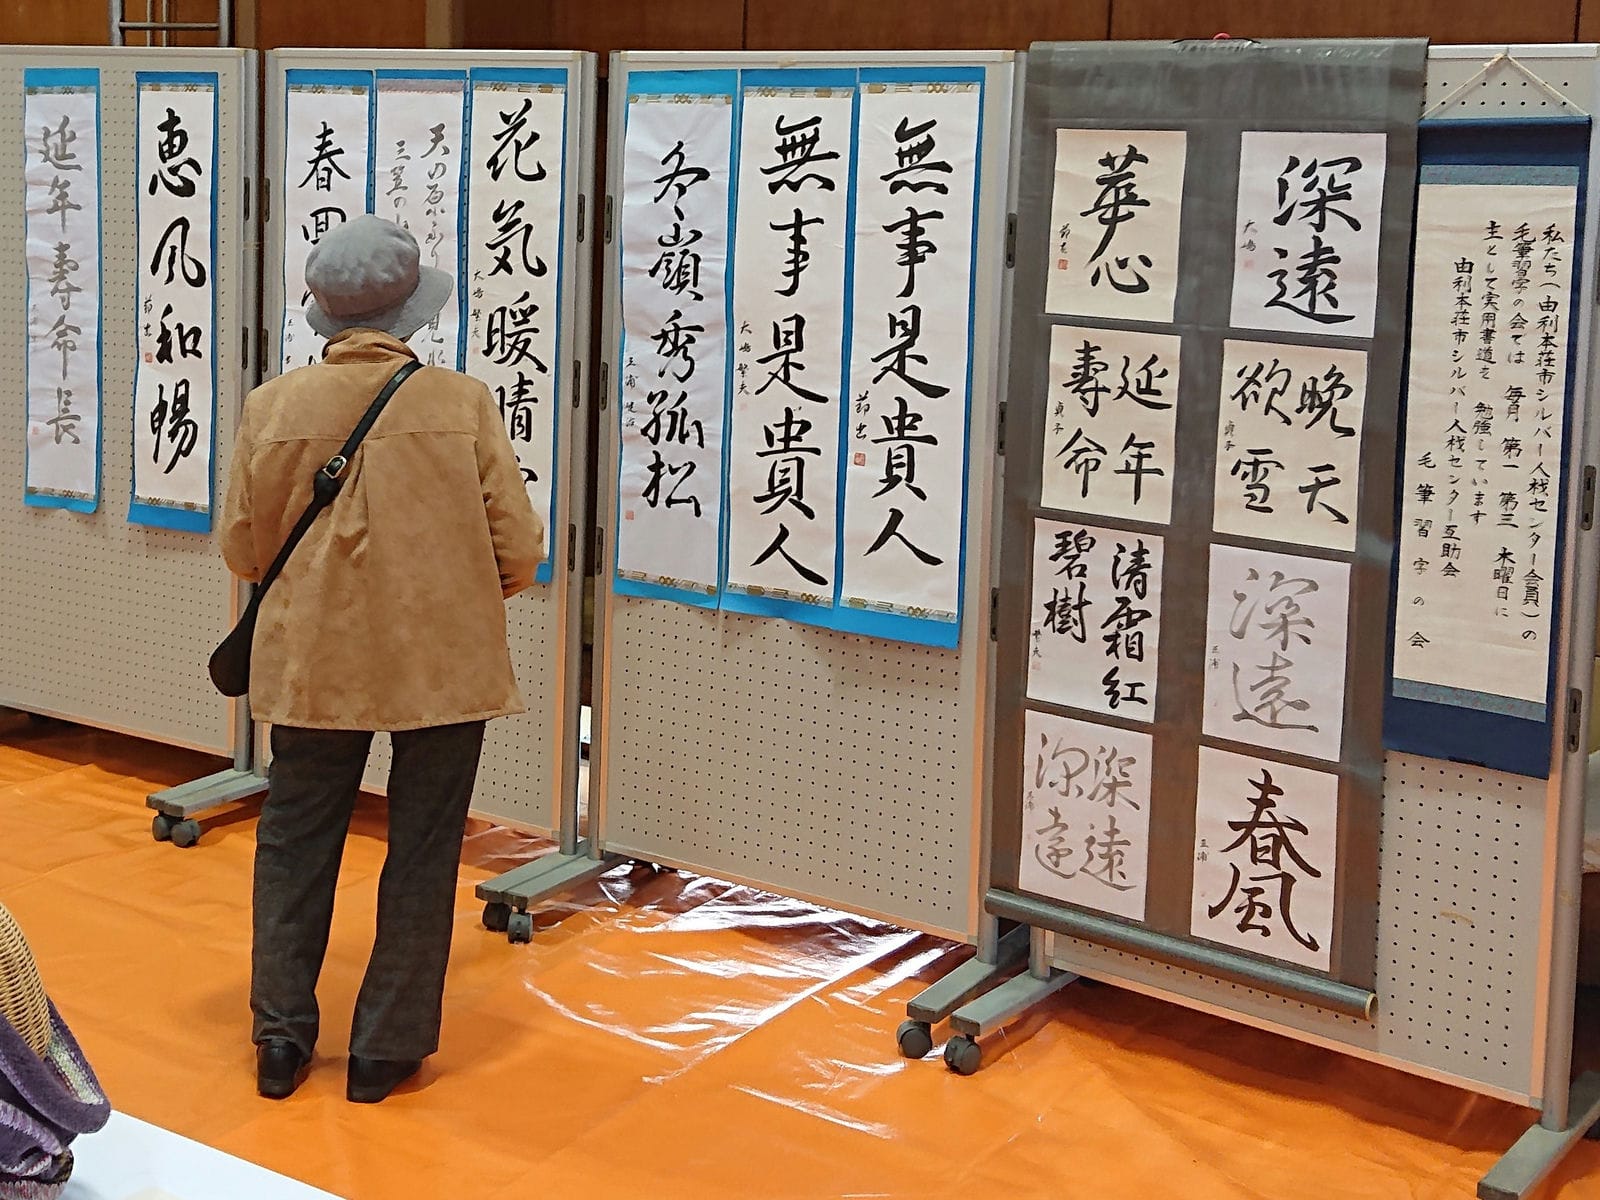 延年寿命長
恵風和暢
春回
天の原
三笠の
花気暖晴
大嶋繁夫
冬嶺秀孤松
三浦
無事是貴人
大嶋繁夫
無事是貴人
華心
深遠
大嶋
延年
壽命
貞子
晩天
欲雪
貞子
清霜紅
碧樹
繁夫
深遠
三浦
深遠
深遠
春風
三浦
私たち(由利本荘市シルバー人材センター会員)の
毛筆習字の会では 毎月 第一 第三 木曜日に
主として実用書道を 勉強しています
由利本荘市シルバー人材センター互助会
毛筆習字の会